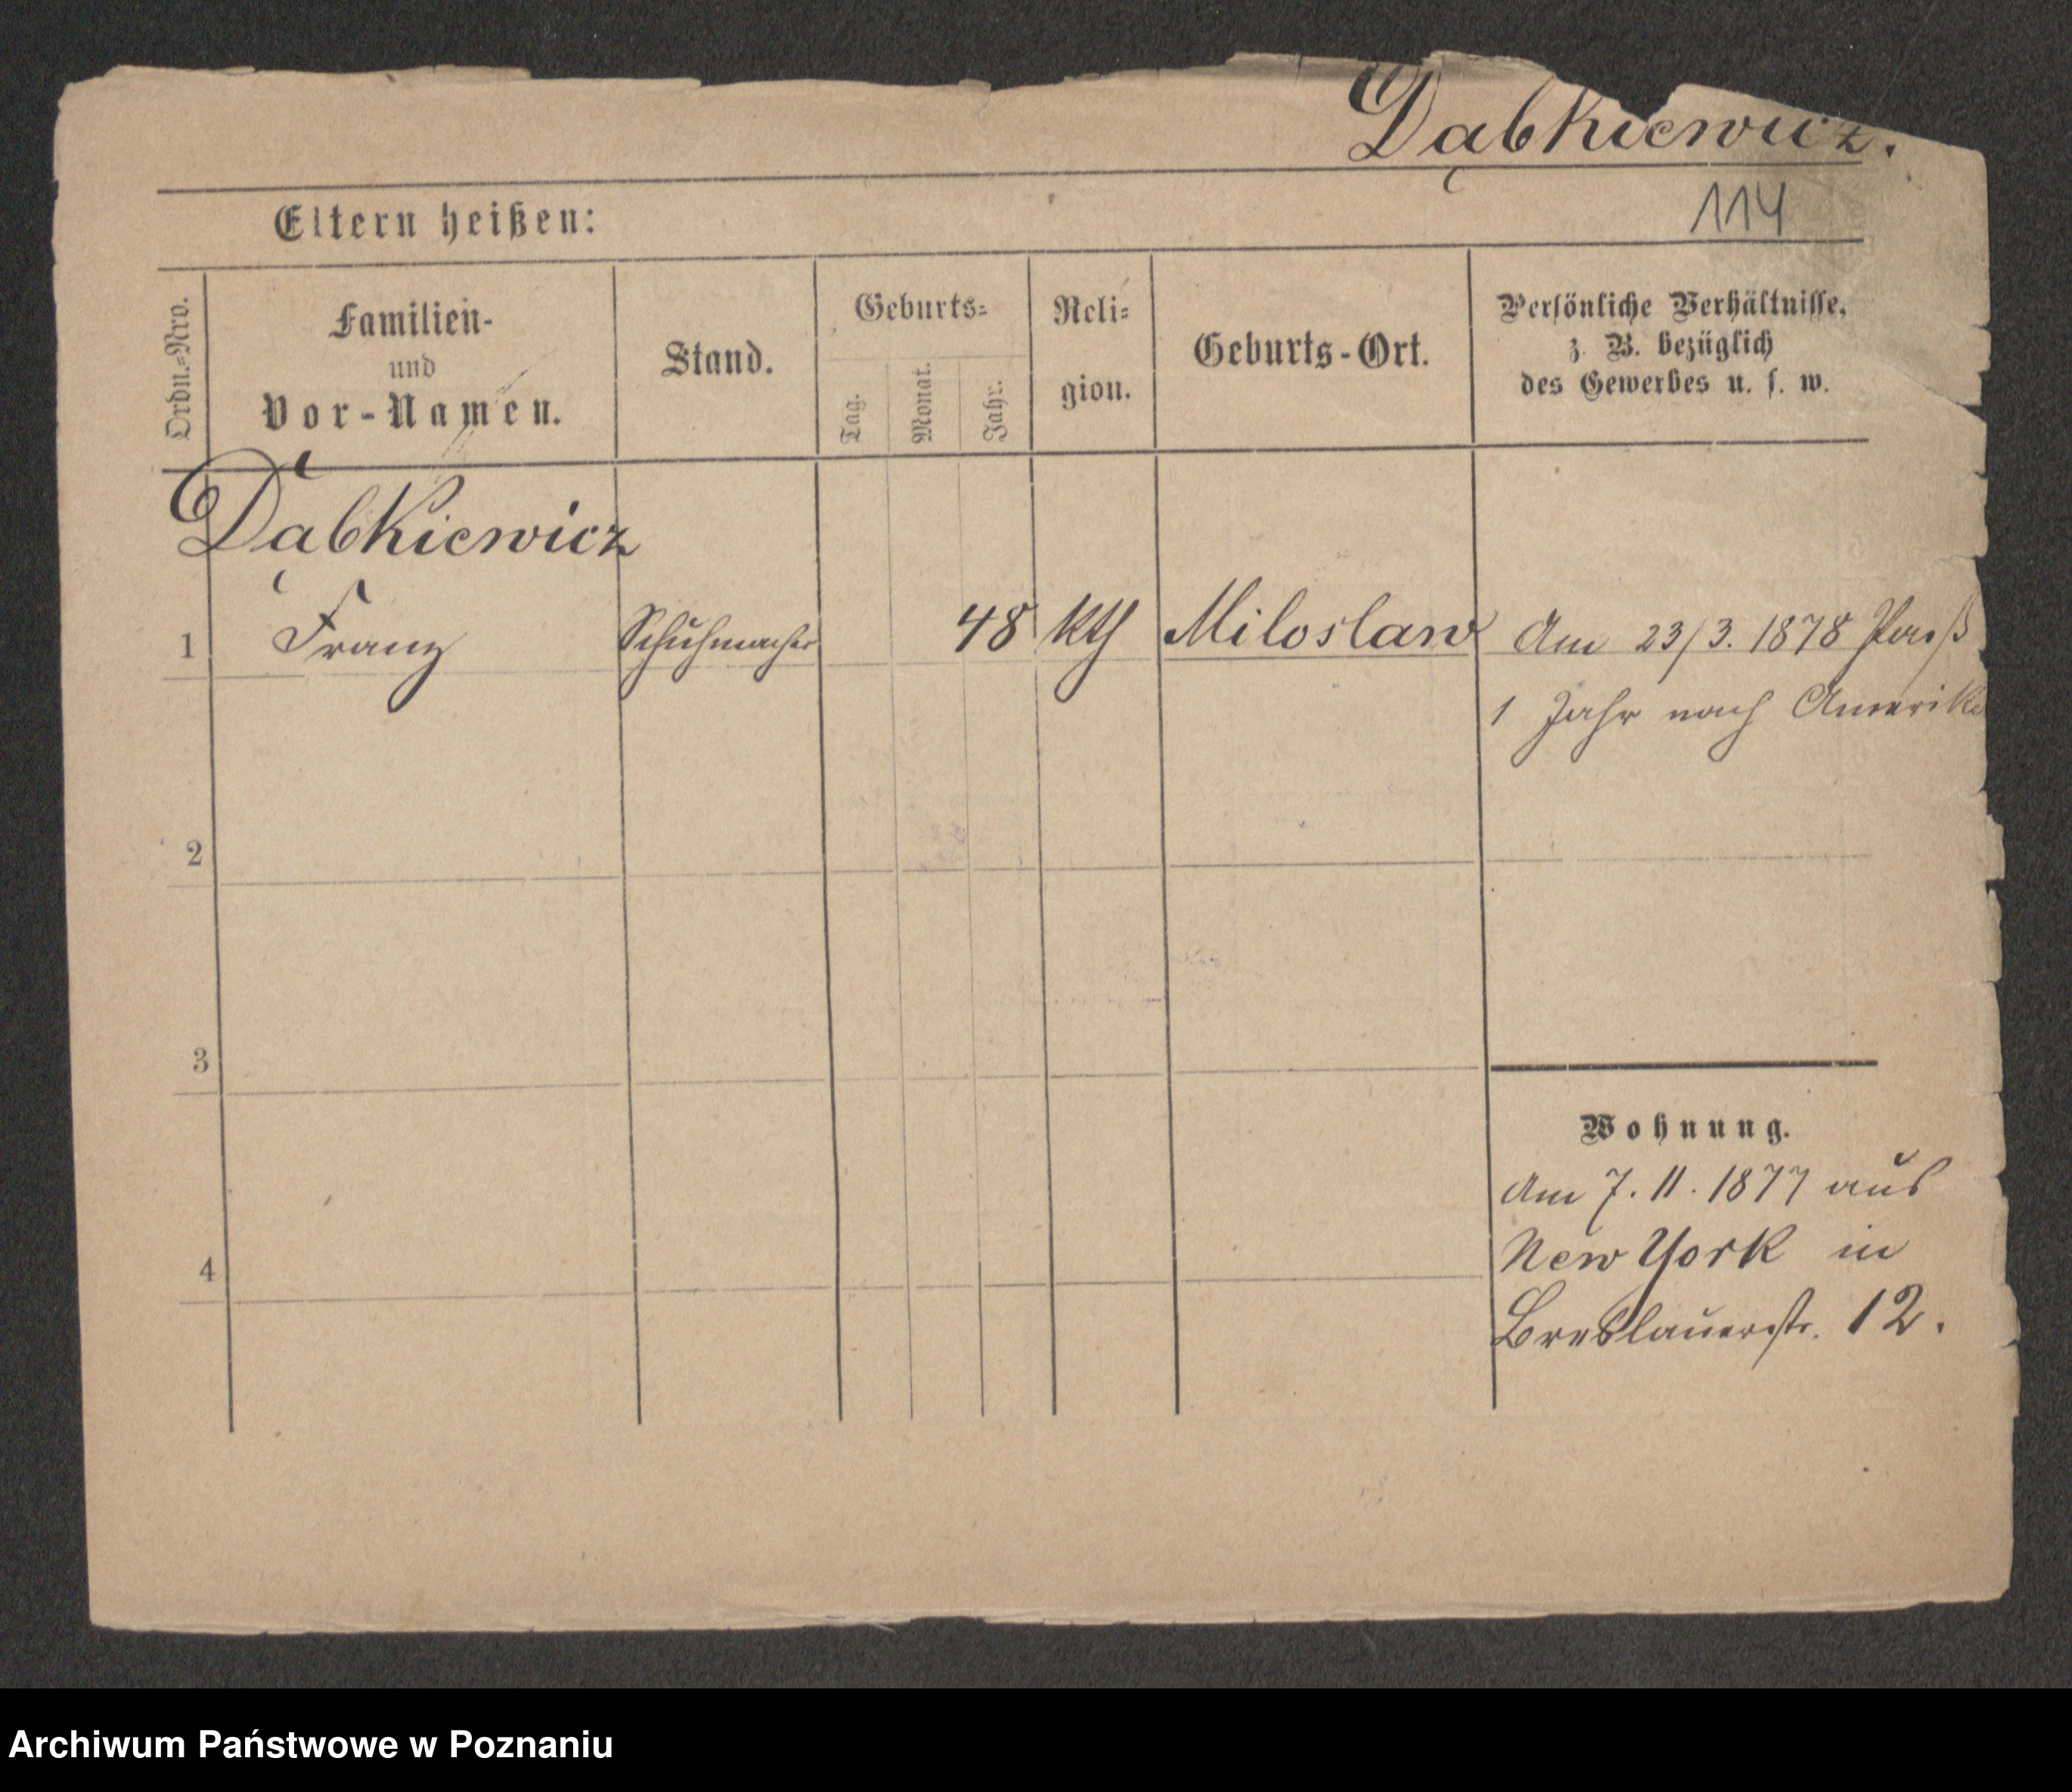 Dąbkiewicz.
114
Eltern heißen:
Ordn.-Nro.
Familien-
und
Vor-Namen.
Stand.
Geburts-
Tag.
Monat.
Jahr.
Reli-
gion.
Geburts-Ort.
Persönliche Verhältnisse,
z. B. bezüglich
des Gewerbes u. s. w.
Dąbkiewicz
1 Franz Schuhmacher 48 kth Miloslaw Am 23/3. 1878 Paß
1 Jahr nach Amerika
2
3
4
Wohnung.
Am 7. 11. 1877 aus
New York in
Breslauerstr. 12.
Archiwum Państwowe w Poznaniu